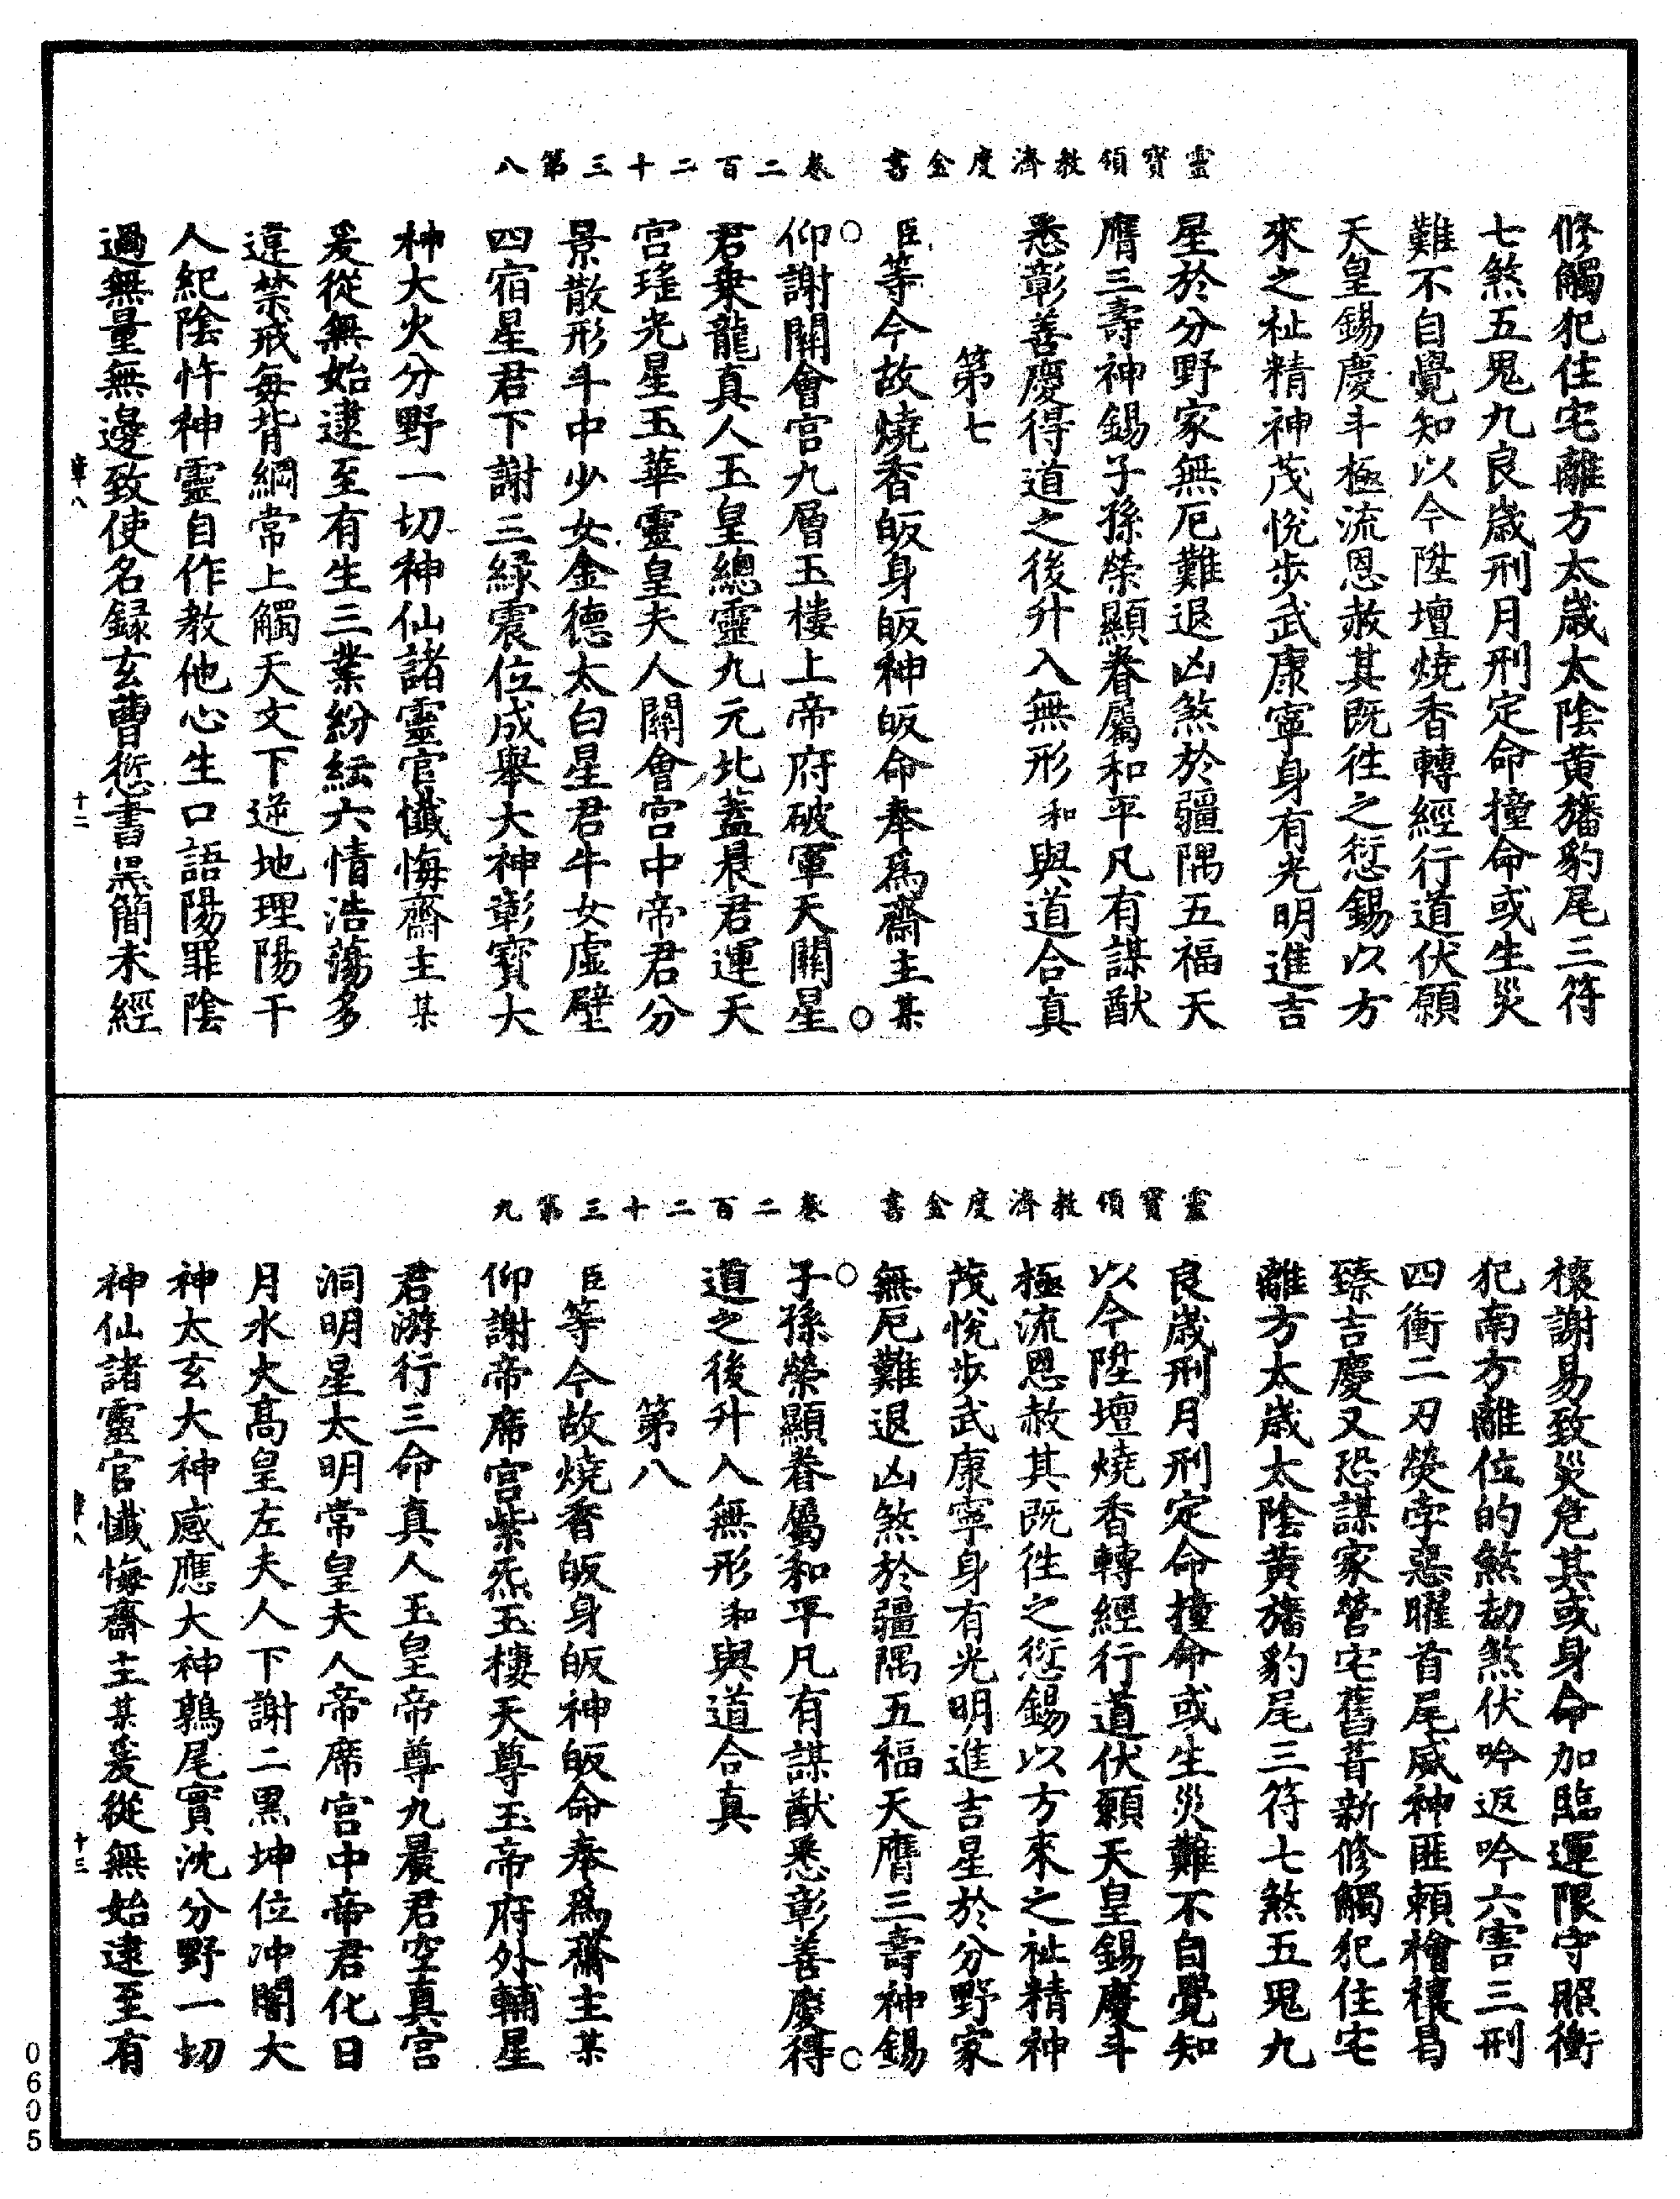 靈寶領教濟度金書　卷二百二十三第八
修觸犯住宅離方太歲太陰黃旛豹尾三符
七煞五鬼九良歲刑月刑定命撞命或生災
難不自覺知以今陞壇燒香轉經行道伏願
天皇錫慶斗極流恩赦其既往之愆錫以方
來之祉精神茂悅步武康寧身有光明進吉
星於分野家無厄難退凶煞於疆隅五福天
膺三壽神錫子孫榮顯眷屬和平凡有謀猷
悉彰善慶得道之後升入無形和與道合真
第七
臣等今故燒香皈身皈神皈命奉爲齋主某
仰謝關會宮九層玉樓上帝府破軍天關星
君乗龍真人玉皇總靈九元北蓋晨君運天
宮瑤光星玉華靈皇夫人關會宮中帝君分
景散形斗中少女金德太白星君牛女虛壁
四宿星君下謝三緑震位成舉大神彰寶大
神大火分野一切神仙諸靈官懺悔齋主某
爰從無始逮至有生三業紛紜六情浩蕩多
違禁戒每背綱常上觸天文下逆地理陽干
人紀陰忤神靈自作教他心生口語陽罪陰
過無量無邊致使名録玄曹愆書黑簡未經
章八　十二
靈寶領教濟度金書　卷二百二十三第九
禳謝易致災危其或身命加臨運限守照衝
犯南方離位的煞劫煞伏吟返吟六害三刑
四衝二刃熒孛惡曜首尾威神匪頼禬禳曷
臻吉慶又恐謀家營宅舊葺新修觸犯住宅
離方太歲太陰黃旛豹尾三符七煞五鬼九
良歲刑月刑定命撞命或生災難不自覺知
以今陞壇燒香轉經行道伏願天皇錫慶斗
極流恩赦其既往之愆錫以方來之祉精神
茂悅步武康寧身有光明進吉星於分野家
無厄難退凶煞於疆隅五福天膺三壽神錫
子孫榮顯眷屬和平凡有謀猷悉彰善慶得
道之後升入無形和與道合真
第八
臣等今故燒香皈身皈神皈命奉爲齋主某
仰謝帝席宮紫炁玉樓天尊玉帝府外輔星
君游行三命真人玉皇帝尊九晨君空真宮
洞明星太明常皇夫人帝席宮中帝君化日
月水火高皇左夫人下謝二黑坤位冲闇大
神太玄大神感應大神鶉尾實沈分野一切
神仙諸靈官懺悔齋主某爰從無始逮至有
章八　十三
0605